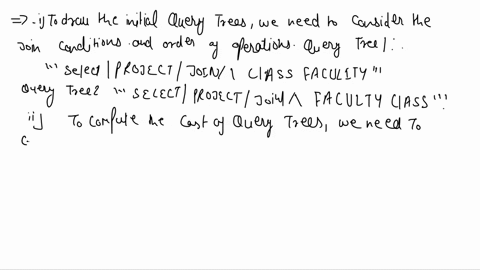 => .i) To draw the initial Query Trees, we need to consider the
Join conditions and order of operations. Query Tree 1:.
''' Select | PROJECT / JOIN / \ CLASS FACULITY '''
Query Tree2 ''' SELECT / PROJECT / Join / \ FACULTY CLASS ''':
ii) To compute the cost of Query Trees, we need To